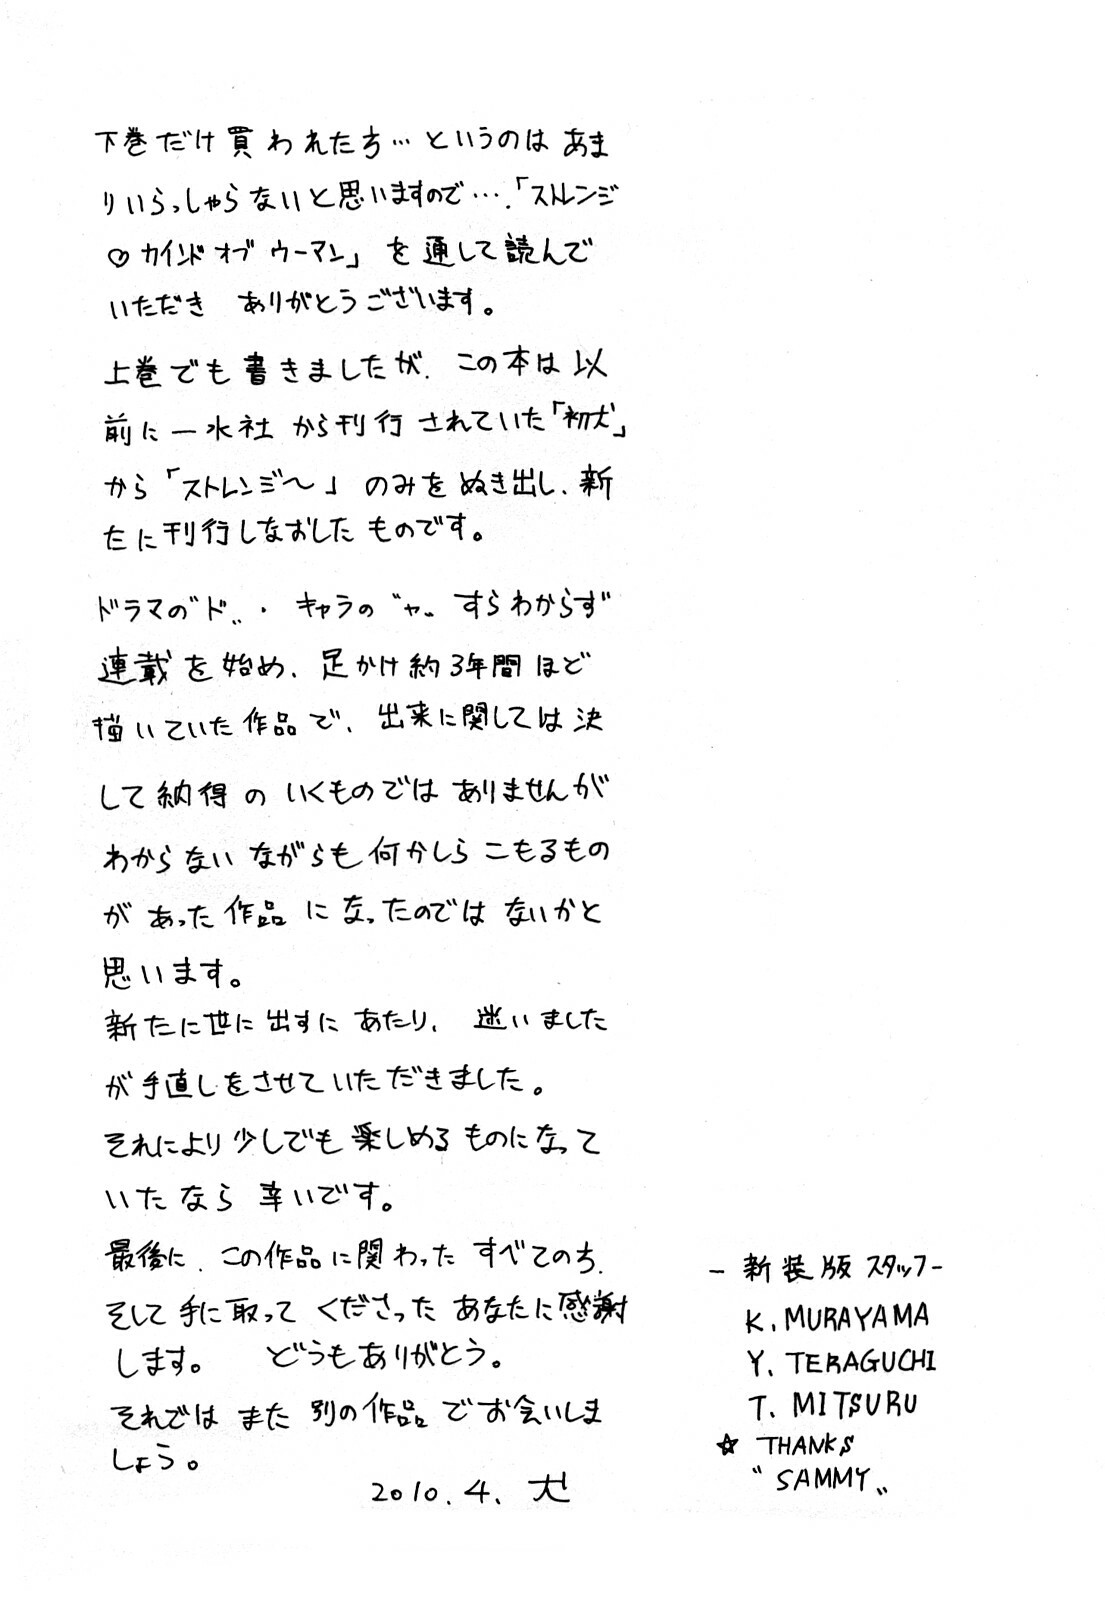 下巻だけ買われた方…というのはあま
りいらっしゃらないと思いますので….「ストレンジ
♡カインドオブ ウーマン」を通して読んで
いただき ありがとうございます。
上巻でも書きましたが、この本は以
前に一水社から刊行されていた「初犬」
から「ストレンジ〜」のみをぬき出し、新
たに刊行しなおしたものです。
ドラマの〝ド〟・キャラの〝ャ〟すらわからず
連載を始め、足かけ約3年間ほど
描いていた作品で、出来に関しては決
して納得のいくものではありませんが
わからないながらも何かしらこもるもの
があった作品になったのではないかと
思います。
新たに世に出すにあたり、迷いました
が手直しをさせていただきました。
それにより少しでも楽しめるものになって
いたなら幸いです。
最後に、この作品に関わったすべての方、
そして手に取ってくださったあなたに感謝
します。 どうもありがとう。
それではまた別の作品でお会いしま
しょう。
2010.4. 犬
-新装版スタッフ-
K. MURAYAMA
Y. TERAGUCHI
T. MITSURU
☆ THANKS
〝SAMMY〟